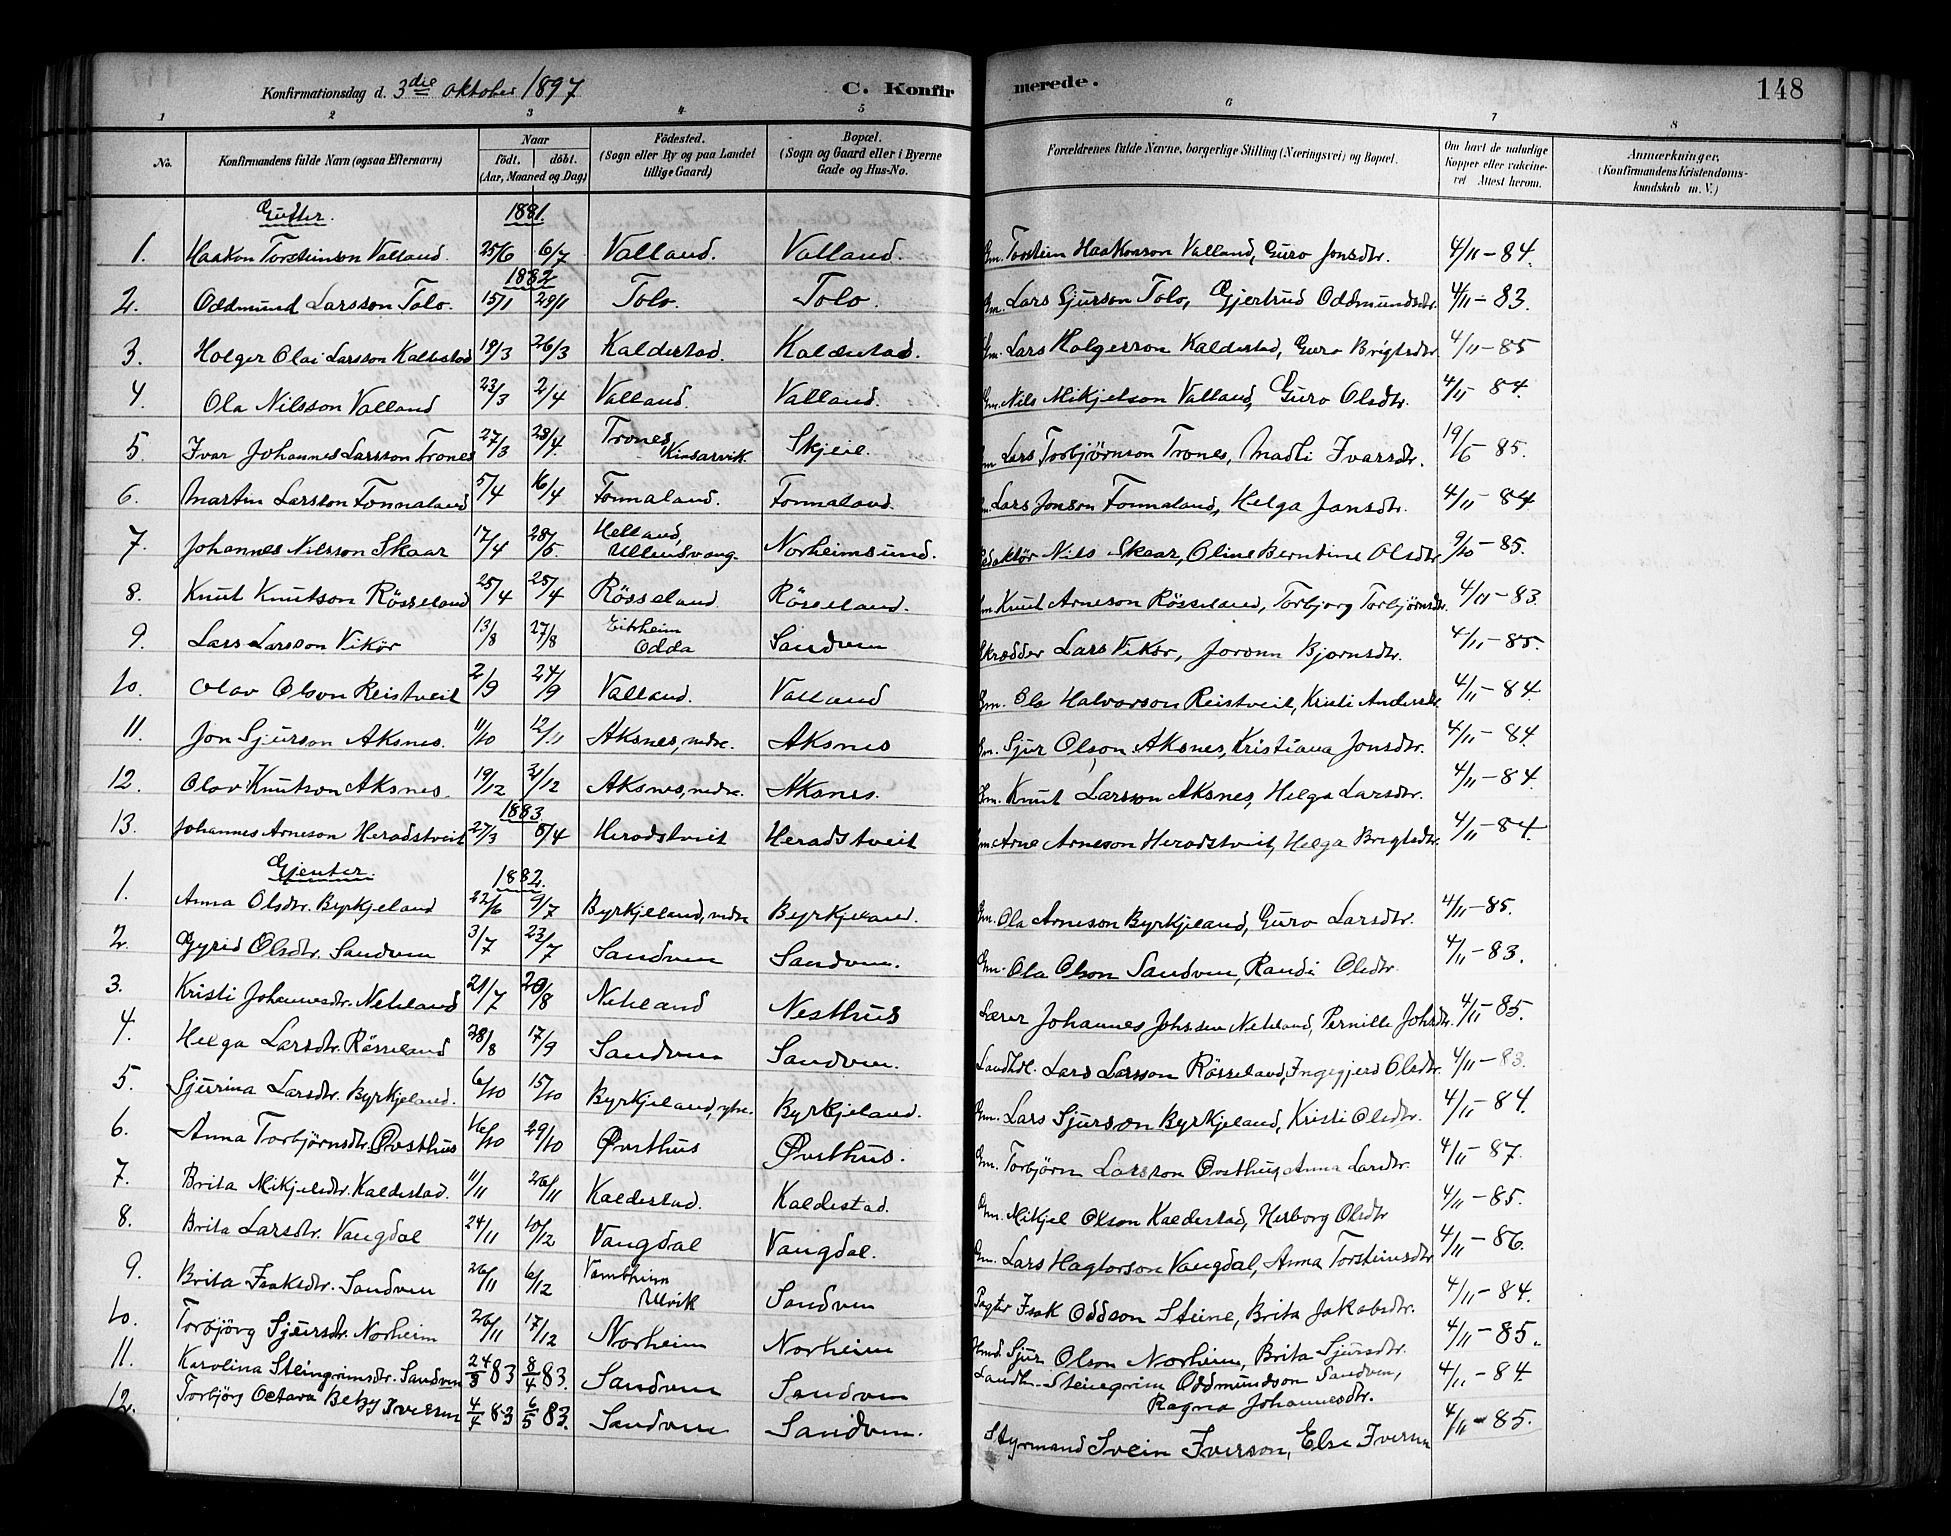 Konfirmationsdag d. 3die oktober 1897
C. Konfirmerede.
148
1 2 3 4 5 6 7 8
No.
Konfirmandens fulde Navn (ogsaa Efternavn)
Naar
födt. döbt.
(Aar, Maaned og Dag)
Födested.
(Sogn eller By og paa Landet
tillige Gaard)
Bopæl.
(Sogn og Gaard eller i Byerne
Gade og Hus-No.
Forældrenes fulde Navne, borgerlige Stilling (Næringsvei) og Bopæl.
Om havt de naturlige
Kopper eller vakcine-
ret Attest herom.
Anmærkninger,
(Konfirmandens Kristendoms-
kundskab m. V.)
Gutter. 1881.
1. Haakon Torsteinson Valland. 25/6 6/7 Valland. Valland. Gm. Torstein Haakonson Valland, Guro Jonsdtr. 4/11-84.
1882
2. Oddmund Larsson Tolo. 15/1 29/1 Tolo. Tolo. Gm. Lars Sjurson Tolo, Gjertrud Oddmundsdtr. 4/11-83.
3. Holger Olai Larsson Kaldestad 18/3 26/3 Kaldestad. Kaldestad. Gm. Lars Holgerson Kaldestad, Guro Brigtsdtr. 4/11-85
4. Ola Nilsson Valland 23/3 2/4 Valland. Valland. Gm. Nils Mikjelson Valland, Guro Olsdtr. 4/11 84.
5. Ivar Johannes Larsson Trones 27/3 23/4. Trones, Kinsarvik. Skjeie. Gm Lars Torbjørnson Trones, Madli Ivarsdtr. 19/6-85.
6. Martin Larsson Tonnaland 5/4 16/4 Tonnaland. Tonnaland. Gm. Lars Jonson Tonnaland, Helga Jansdtr. 4/11-84
7. Johannes Nilsson Skaar 17/4 28/5 Helland, Ullensvang. Norheimsund. Redaktör Nils Skaar, Oline Berntine Olsdtr 9/10-85.
8. Knut Knutson Rösseland 25/4 25/4 Rösseland Rösseland. Gm. Knut Arneson Rösseland, Torbjorg Torbjörnsdtr. 4/11-83
9. Lars Larsson Vikör 13/8 27/8 Eitrheim Odda Sandven Skrædder Lars Vikör, Joronn Bjornsdtr. 4/11-85.
10. Olav Olson Reistveit 2/9 24/9 Valland. Valland Gm. Ola Halvorson Reistveit, Kristi Andersdtr 4/11-84
11. Jon Sjurson Aksnes. 11/10 12/11 Aksnes, nedre. Aksnes Gm. Sjur Olson Aksnes, Kristiana Jonsdtr. 4/11-84.
12. Olav Knutson Aksnes. 19/12 31/12 Aksnes, nedre. Aksnes. Gm. Knut Larsson Aksnes, Helga Larsdtr. 4/11-84
1883
13. Johannes Arneson Heradstveit 27/3 8/4 Heradstveit Heradstveit Gm Arne Arneson Heradstveit, Helga Brigtsdtr. 4/11-84
Gjenter. 1882.
1. Anna Olsdtr. Byrkjeland 22/6 9/7 Byrkjeland, nedre Byrkjeland. Gm. Ola Arneson Byrkjeland, Guro Larsdtr. 4/11-85.
2. Gyrid Olsdtr. Sandven 3/7 23/7 Sandven Sandven. Gm. Ola Olson Sandven, Randi Olsdtr. 4/11-83.
3. Kristi Johannesdtr. Netland 21/7 20/8 Netland Nesthus Lærer Johannes Johnsen Netland, Pernille Johsdtr. 4/11-85.
4. Helga Larsdtr. Rösseland 28/8 17/9 Sandven Sandven. Landhdl. Lars Larsson Rösseland, Ingegjerd Olsdtr. 4/11-83.
5. Sjurina Larsdtr. Byrkjeland. 6/10 15/10 Byrkjeland, ytre. Byrkjeland. Gm. Lars Sjurson Byrkjeland, Kristi Olsdtr. 4/11-84.
6. Anna Torbjörnsdtr. Øvsthus 16/10 29/10 Øvsthus Øvsthus. Gm. Torbjörn Larsson Øvsthus, Anna Larsdtr. 4/11-87.
7. Brita Mikjelsdtr. Kaldestad. 11/11 26/11 Kaldestad. Kaldestad. Gm. Mikjel Olson Kaldestad, Herborg Olsdtr 4/11-85.
8. Brita Larsdtr. Vangdal 24/11 10/12 Vangdal Vangdal. Gm. Lars Hagtorson Vangdal, Anna Torsteinsdtr 4/11-86.
9. Brita Isaksdtr. Sandven 26/11 6/12 Ulvik Sandven Pagter Isak Oddson Steine, Brita Jakobsdtr. 4/11-84.
10. Torbjörg Sjursdtr. Norheim 26/11 17/12 Norheim Norheim Hmd. Sjur Olson Norheim, Brita Sjursdtr. 4/11-85.
11. Karolina Steingrimsdtr. Sandven 24/3 83 8/4 83. Sandven Sandven Landh. Steingrim Oddmundson Sandven, Ragna Johannesdtr. 4/11-84.
12. Torbjörg Octava Betzy Iversen 4/4 83 6/5 83. Sandven Sandven. Styrmand Svein Iverson, Else Iversen 4/11-85.